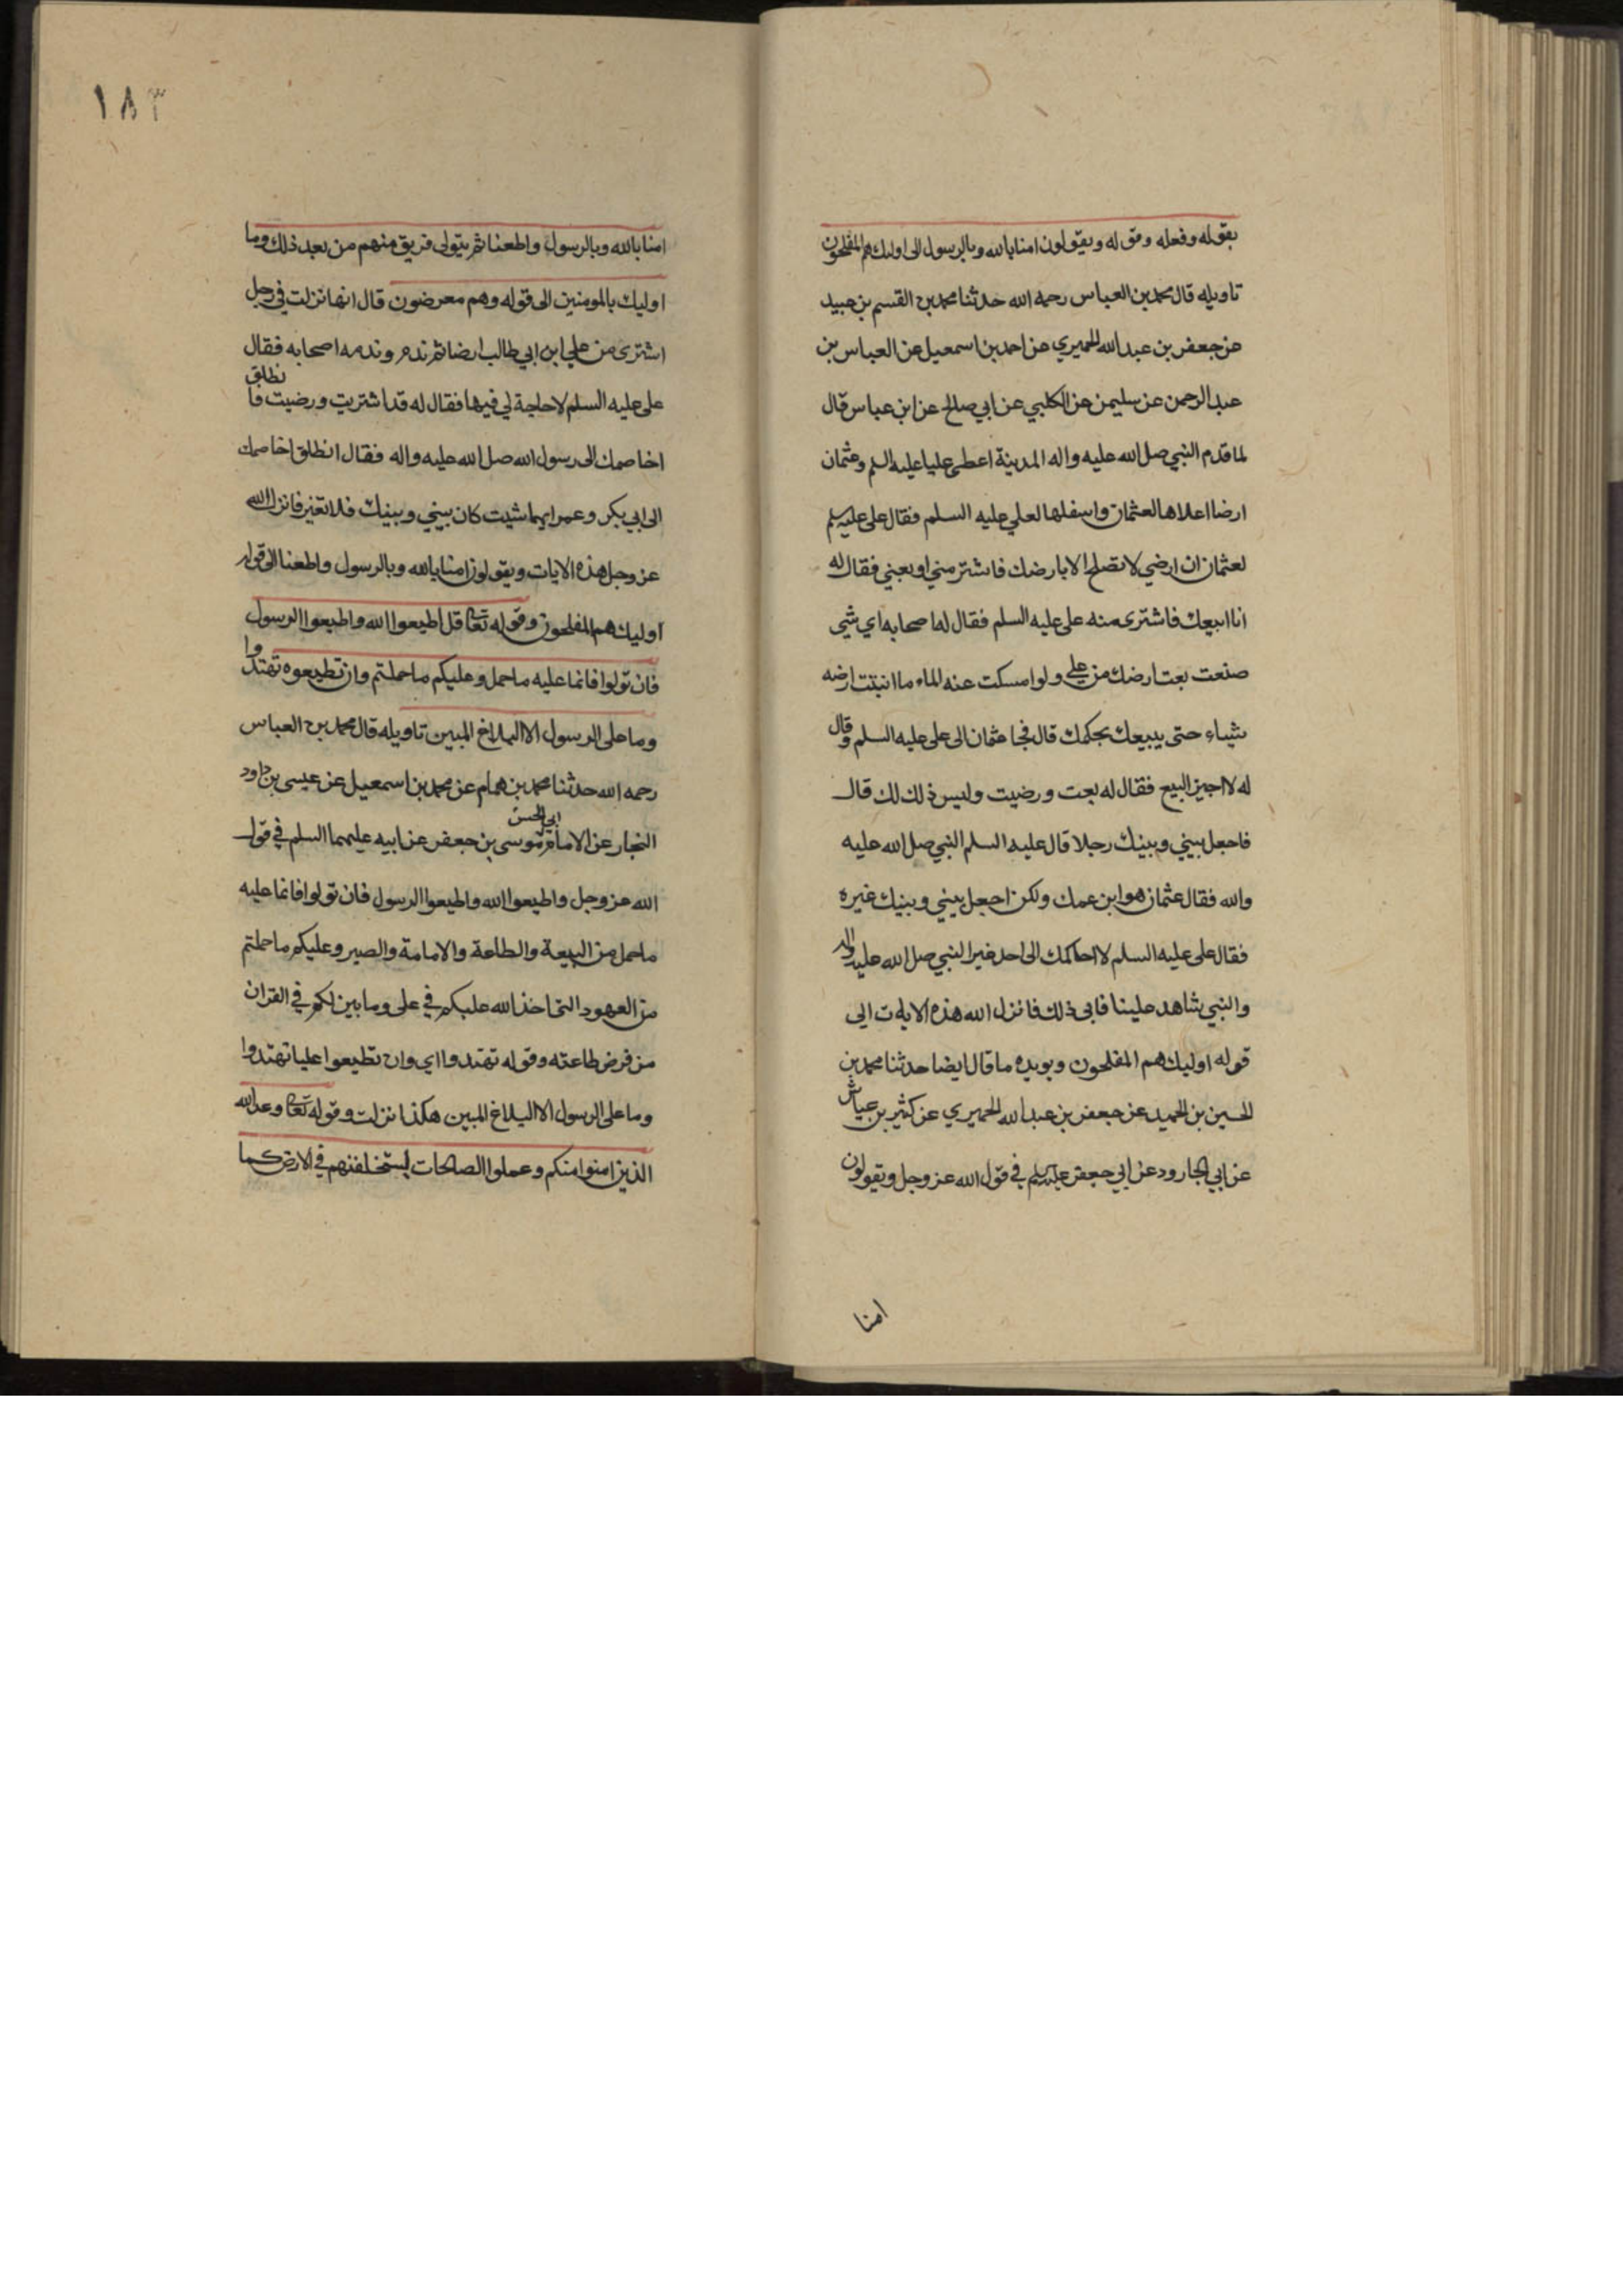 بقوله وفعله وقوله ويقولون امنا بالله وبالرسول الى اوليك هم المفلحون
تاويله قال محمد بن العباس رحمه الله حدثنا محمد بن القسم بن عبيد
عن جعفر بن عبدالله المحميري عن احمد بن اسمعيل عن العباس بن
عبد الرحمن عن سليمن عن الكلبي عن ابي صالح عن ابن عباس قال
لما قدم النبي صل الله عليه واله المدينة اعطى عليا عليه السلم وعثمان
ارضا اعلاها لعثمان واسفلها لعلي عليه السلم فقال على عليه سلم
لعثمان ان ارضي لا تصلح الا بارضك فاشتر مني او بعني فقال له
انا ابيعك فاشترى منه على عليه السلم فقال له اصحابه اي شي
صنعت بعت ارضك من علي ولو امسكت عنه الماء ما انبتت ارضه
شياء حتى يبيعك بحكمك قال فجا عثمان الى على عليه السلم وقال
له لا اجيز البيع فقال له بعت ورضيت وليس ذلك لك قال
فاجعل بيني وبينك رجلا قال عليه السلم النبي صل الله عليه
واله فقال عثمان هو ابن عمك ولكن اجعل بيني وبينك غيره
فقال على عليه السلم لا احاكمك الى احد غير النبي صل الله عليه واله
والنبي شاهد علينا فابى ذلك فانزل الله هذه الايات الى
قوله اوليك هم المفلحون ويويده ما قال ايضا حدثنا محمد بن
الحسين بن الحميد عن جعفر بن عبدالله المحميري عن كثير بن عياش
عن ابي الجارود عن ابي جعفر عليه سلم في قول الله عز وجل ويقولون
امنا
١٨٣
امنا بالله وبالرسول واطعنا ثم يتولى فريق منهم من بعد ذلك وما
اوليك بالمومنين الى قوله وهم معرضون قال انها نزلت في رجل
اشترى من علي ابن ابي طالب ارضا ثم ندم وندمه اصحابه فقال
على عليه السلم لا حاجة لي فيها فقال له قد اشتريت ورضيت فا نطلق
اخاصمك الى رسول الله صل الله عليه واله فقال انطلق اخاصمك
الى ابي بكر وعمر ايهما شيت كان بيني وبينك فلا تغير فانزل الله
عز وجل هذه الايات ويقولون امنا بالله وبالرسول واطعنا الى قوله
اوليك هم المفلحون وقوله تعالى قل اطيعوا الله واطيعوا الرسول
فان تولوا فانما عليه ما حمل وعليكم ما حملتم وان تطيعوه تهتدوا
وما على الرسول الا البلاغ المبين تاويله قال محمد بن العباس
رحمه الله حدثنا محمد بن همام عن محمد بن اسمعيل عن عيسى بن داود
النجار عن الامام ابي الحسن موسى بن جعفر عن ابيه عليهما السلم في قول
الله عز وجل واطيعوا الله واطيعوا الرسول فان تولوا فانما عليه
ما حمل من البيعة والطاعة والامامة والصبر وعليكم ما حملتم
من العهود التي اخذ الله عليكم في على وما بين لكم في القران
من فرض طاعته وقوله تهتدوا اي وان تطيعوا عليا تهتدوا
وما على الرسول الا البلاغ المبين هكذا نزلت وقوله تعالى وعد الله
الذين امنوا منكم وعملوا الصالحات ليستخلفنهم في الارض كما